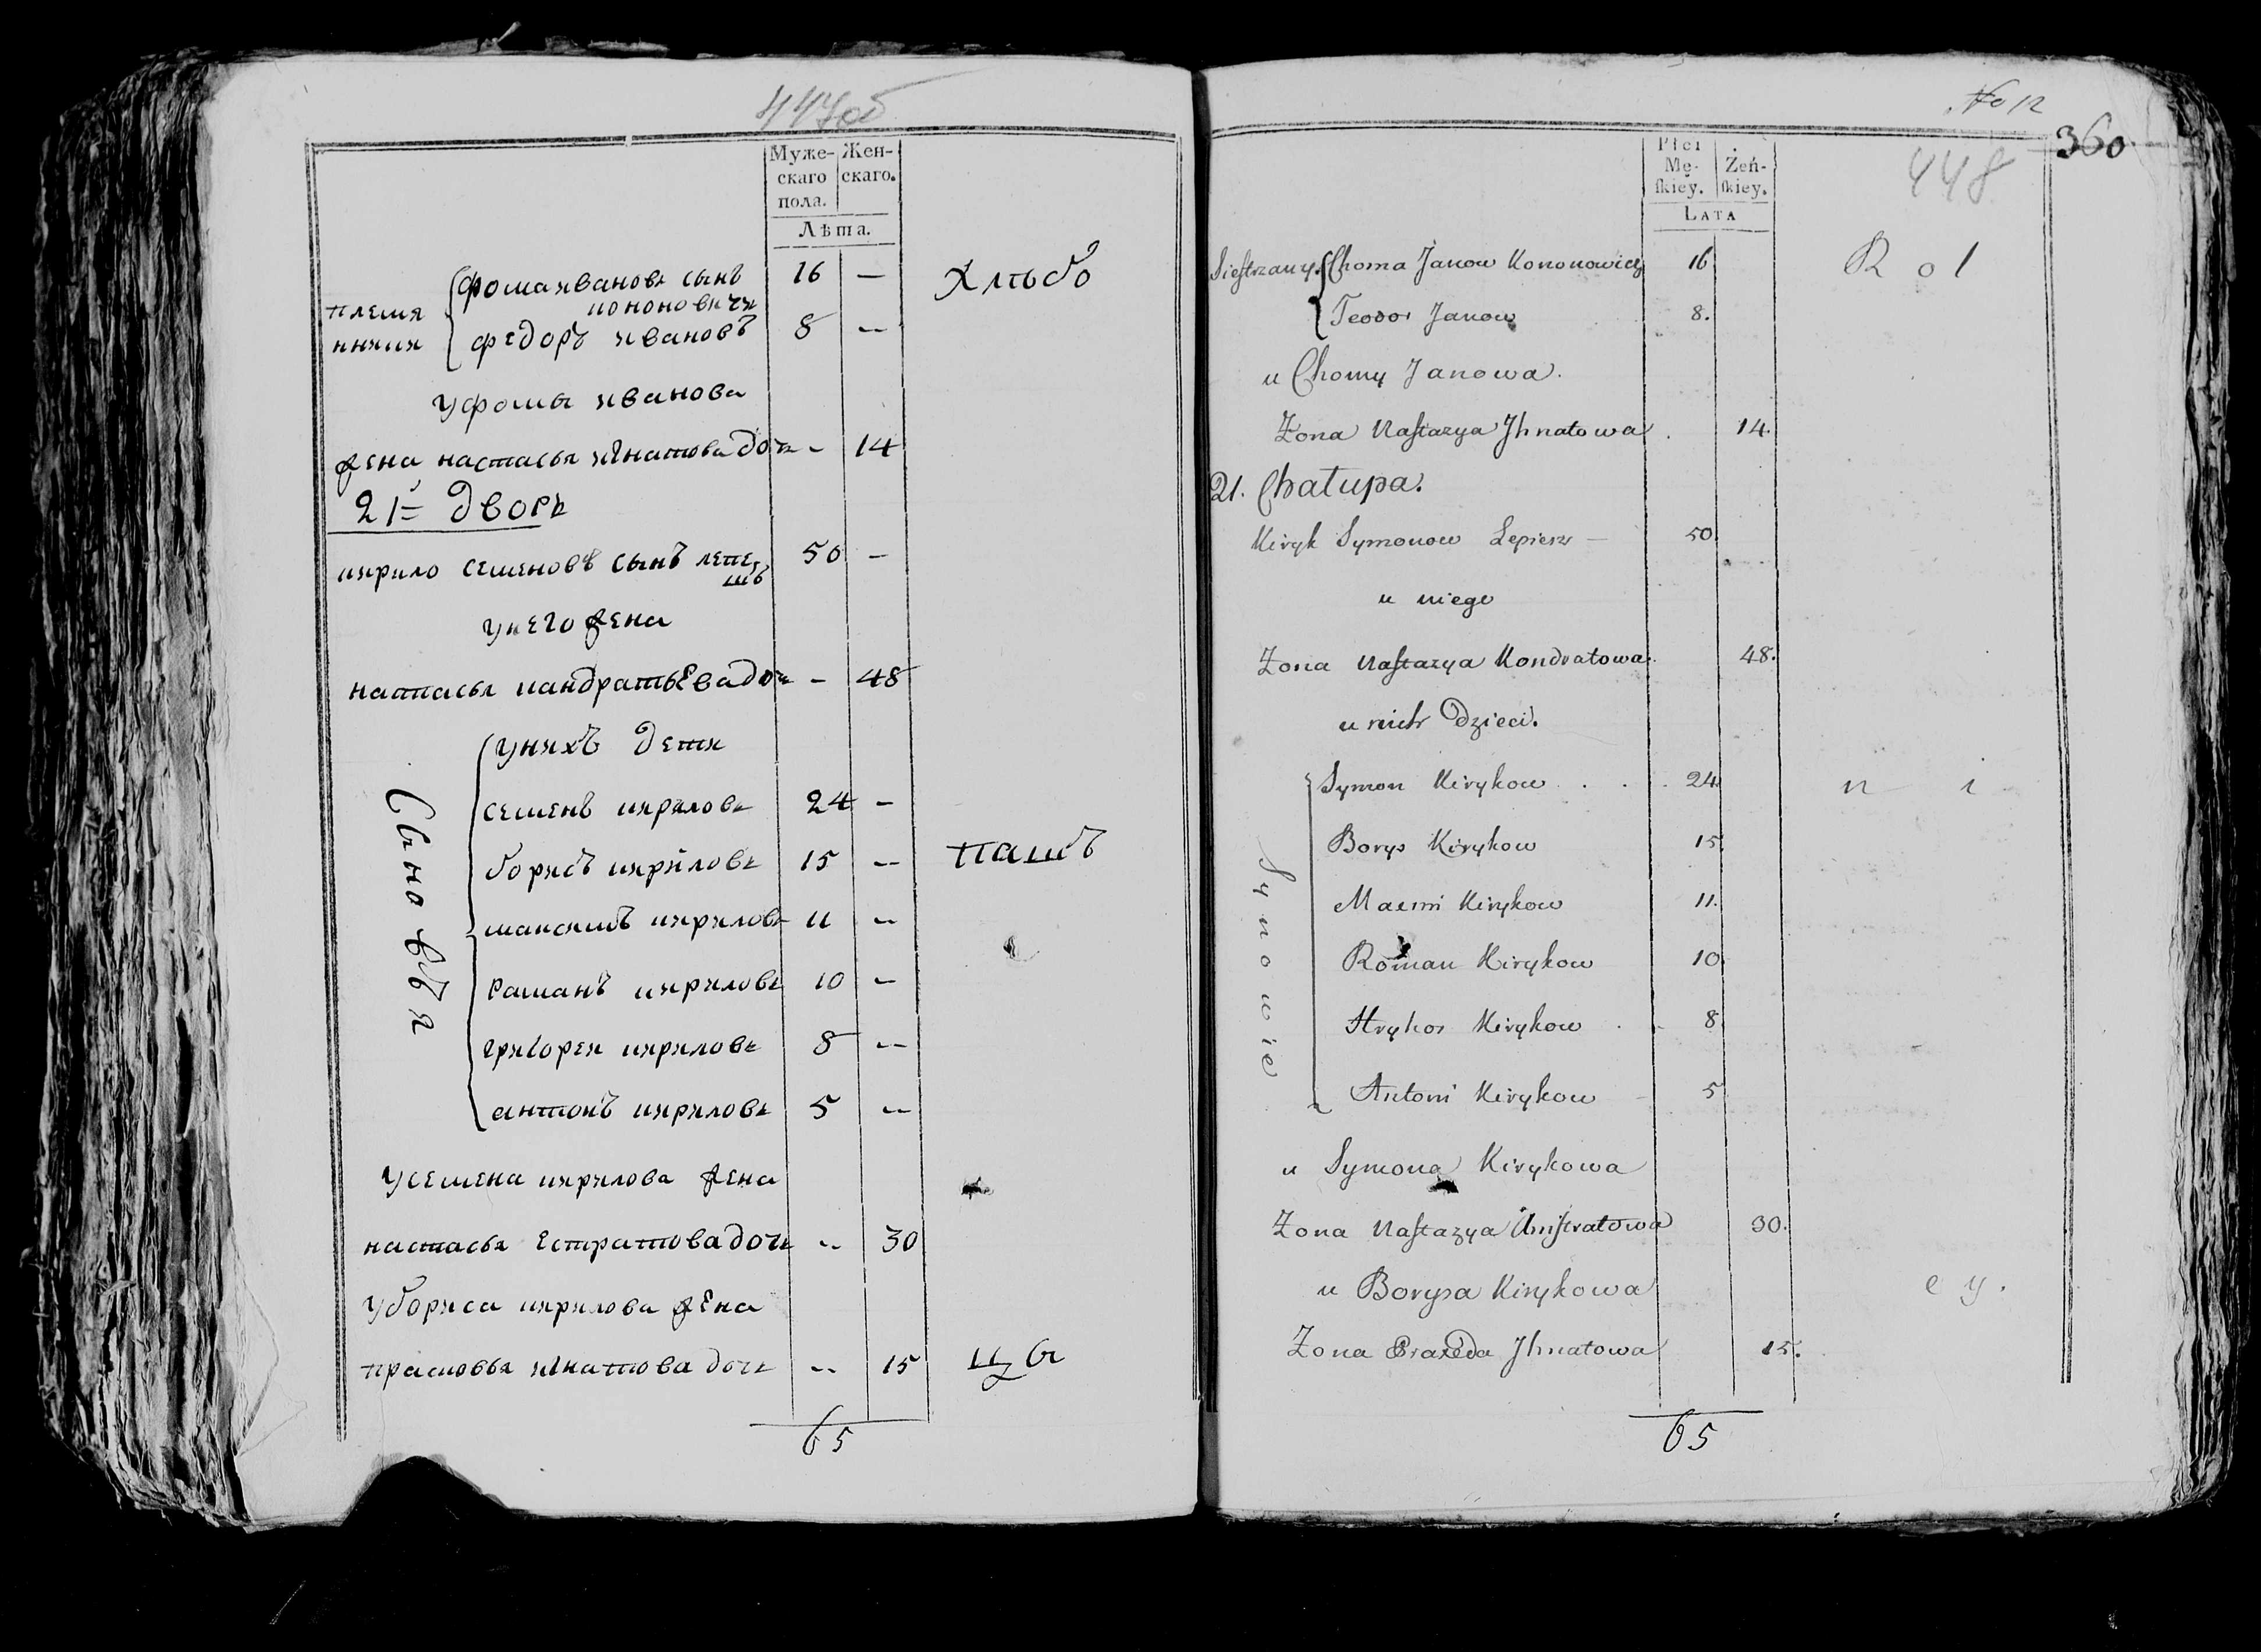 447об
Муже-
скаго
пола.
Жен-
скаго.
Лѣта.
фома иванове сынъ 16 — хлѣбо
кононовичъ
племя
нники
федоръ ивановъ 8 —
у фомы иванова
жена настасья игнатова дочь - 14
21= дворъ
кирило семеновъ сынъ лепе, 50 -
шъ
у него жена
настасья кандратьева дочь - 48
у нихъ дети
Сыновья
семенъ кирилове 24 -
борисъ кирилове 15 — пашъ
максимъ кирилове 11 —
раманъ кирилове 10 —
григореи кирилове 8 —
антонъ кирилове 5 —
у семена кирилова жена
настасья естратова дочь — 30
у бориса кирилова жена
прасковья игнатова дочь — 15 цы
65
No 12
360
448
Płci
Mę-
ſkiéy.
Żeń-
ſkiey.
Lata
Siestrzany Choma Janow Kononowicz 16 R o l
Teodor Janow 8.
u Chomy Janowa.
Zona Nastazya Jhnatowa 14.
21. Chałupa.
Kiryk Symonow Lepiesz — 50
u niego
Zona Nastazya Kondratowa 48.
u nich Dzieci.
Synowie
Symon Kirykow 24. n i
Borys Kirykow 15
Maxim Kirykow 11.
Roman Kirykow 10
Hryhor Kirykow 8
Antoni Kirykow 5
u Symona Kirykowa
Zona Nastazya 30.
u Borysa Kirykowa e y.
Zona Praxeda Jhnatowa 15.
65